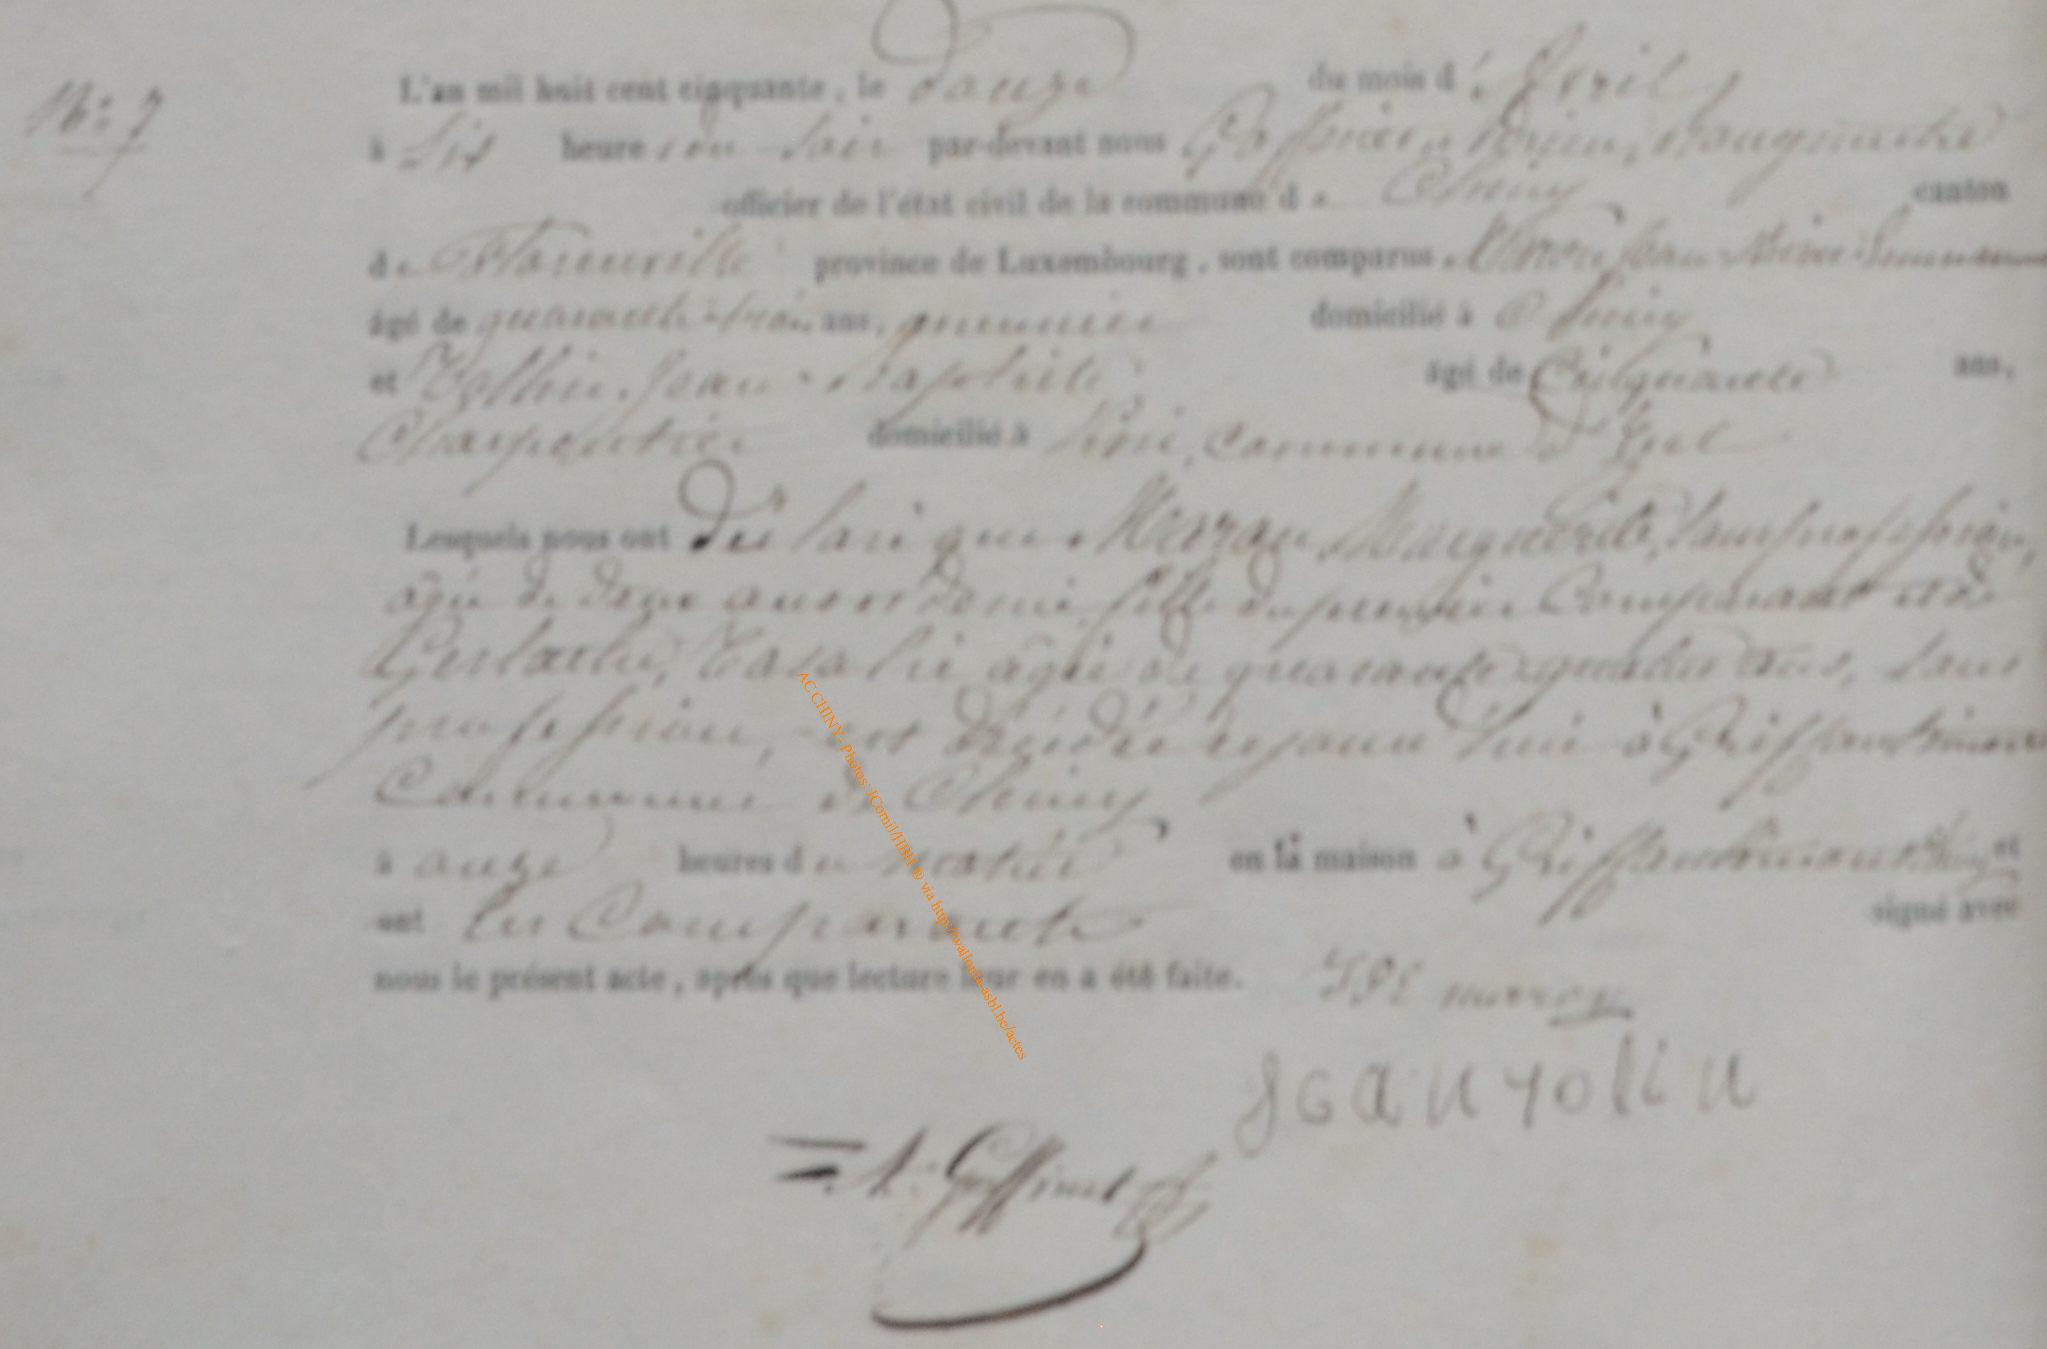 N° 7
L'an mil huit cent cinquante, le douze du mois d'Avril
à six heures du soir par-devant nous Goffinet Adrien, bourgmestre
officier de l'état civil de la commune de Chiny canton
de Florenville province de Luxembourg, sont comparus Maron Jean
âgé de quarante-trois ans, meunier domicilié à Chiny
et Jean-Baptiste âgé de Cinquante ans,
Charpentier domicilié à commune d'Izel
Lesquels nous ont déclaré que Marguerite, sans profession,
âgée de deux ans et demi, fille du premier Comparant et de
âgée de quarante quatre ans, sans
profession, est décédée ce jourd'hui à
Commune de Chiny
à onze heures du matin en la maison à et
ont les Comparants signé avec
nous le présent acte, après que lecture leur en a été faite.
maron
A. Goffinet
AC CHINY - Photos: JCornil/HBH © via http://wallonia-asbl.be/actes